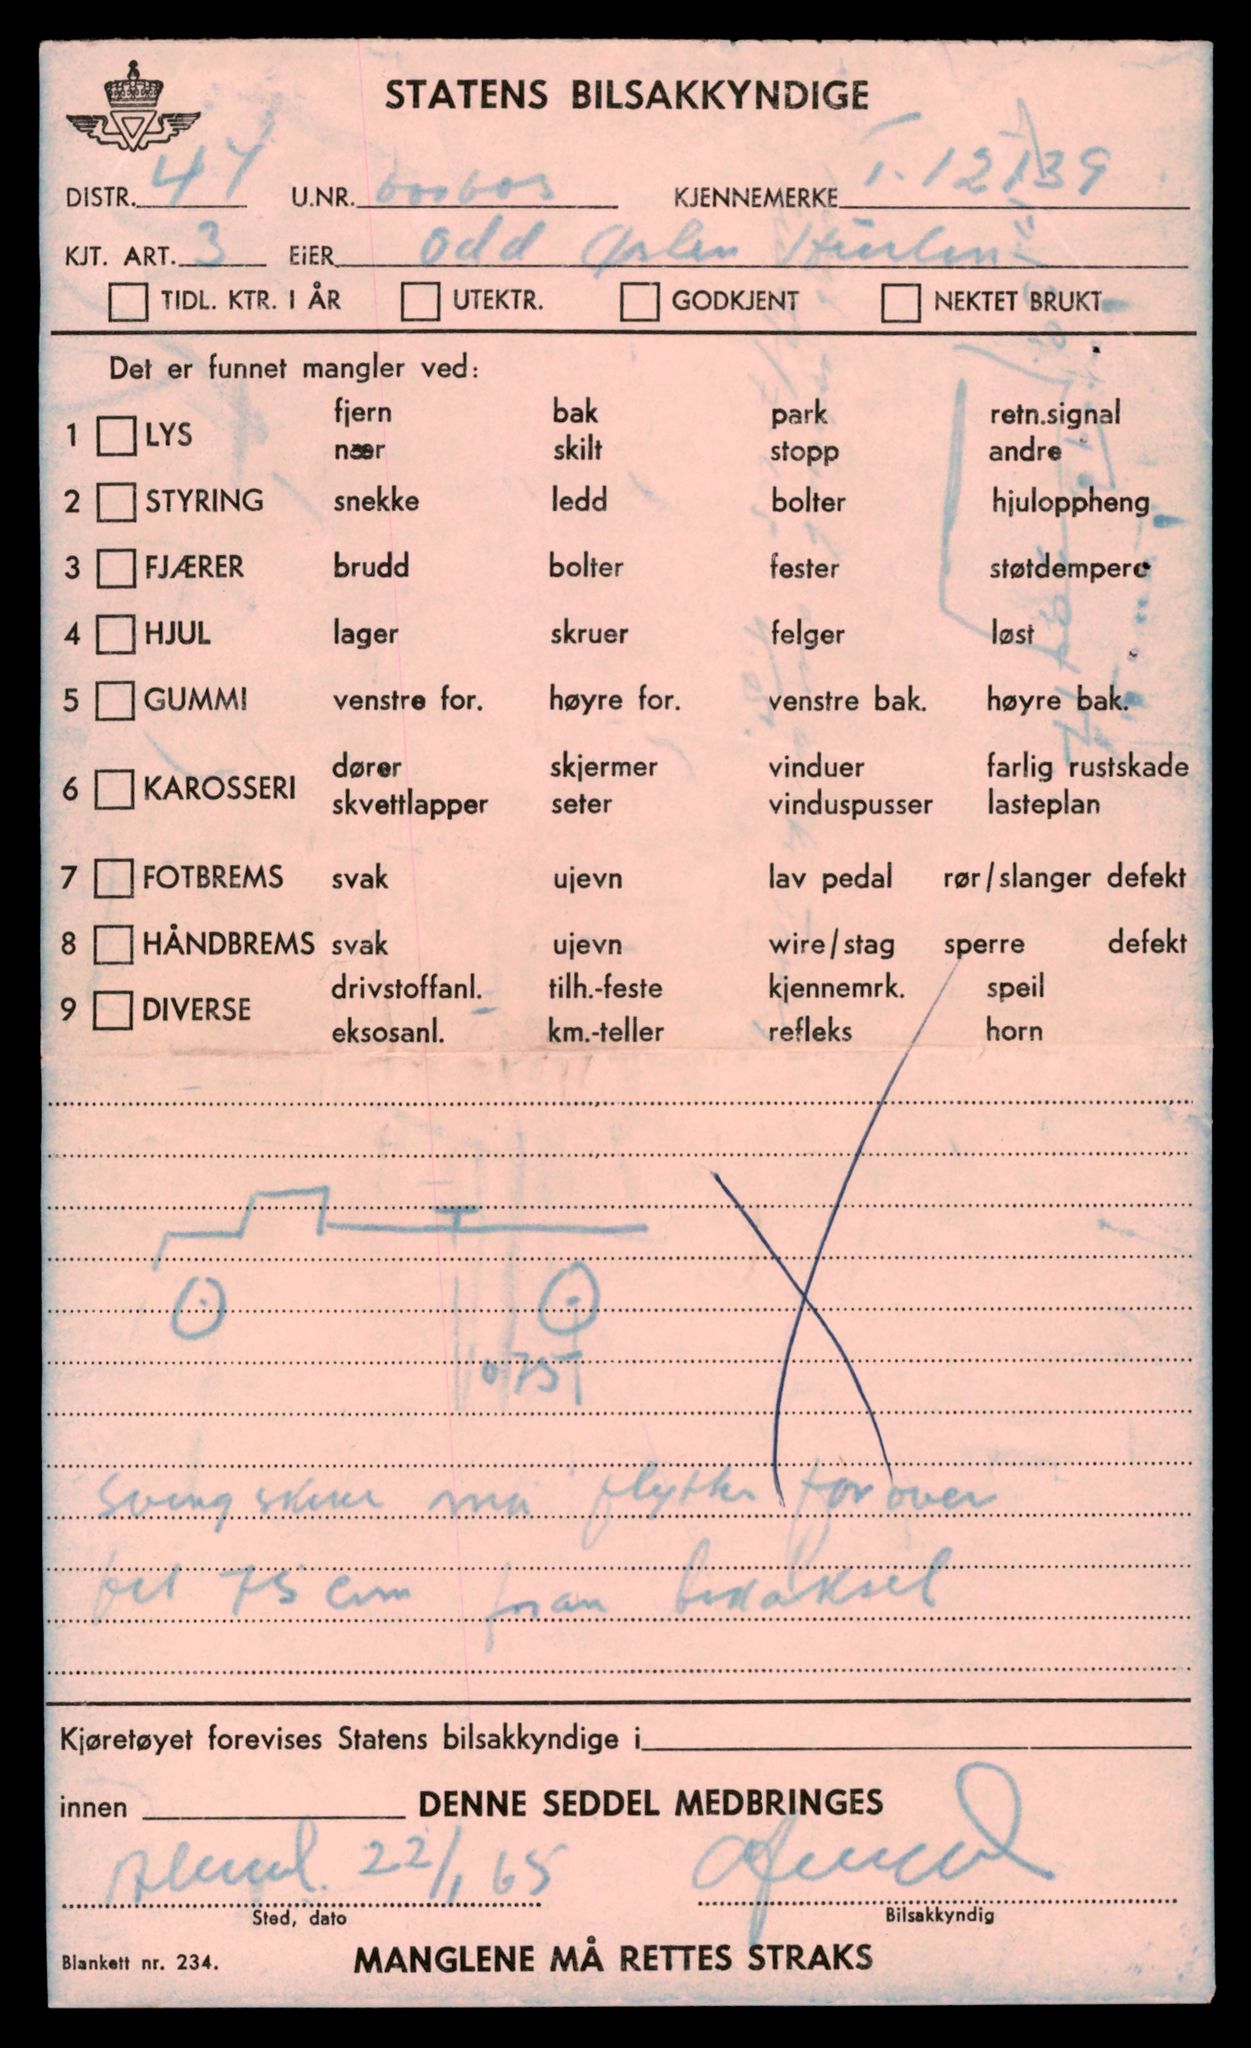 STATENS BILSAKKYNDIGE
DISTR. 44 U.NR. KJENNEMERKE T-12139
KJT. ART. 3 EiER Odd
TIDL. KTR. I ÅR UTEKTR. GODKJENT NEKTET BRUKT
Det er funnet mangler ved:
fjern bak park retn.signal
1 LYS
nær skilt stopp andre
2 STYRING snekke ledd bolter hjuloppheng
3 FJÆRER brudd bolter fester støtdempere
4 HJUL lager skruer felger løst
5 GUMMI venstre for. høyre for. venstre bak. høyre bak.
dører skjermer vinduer farlig rustskade
6 KAROSSERI
skvettlapper seter vinduspusser lasteplan
7 FOTBREMS svak ujevn lav pedal rør/slanger defekt
8 HÅNDBREMS svak ujevn wire/stag sperre defekt
drivstoffanl. tilh.-feste kjennemrk. speil
9 DIVERSE
eksosanl. km.-teller refleks horn
075
Svingskive må flyttes forover
til 75 cm foran bakaksel
Kjøretøyet forevises Statens bilsakkyndige i
innen DENNE SEDDEL MEDBRINGES
22/1 65
Sted, dato Bilsakkyndig
Blankett nr. 234. MANGLENE MÅ RETTES STRAKS